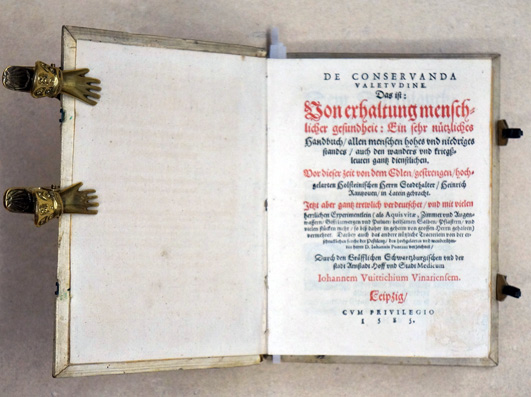 DE CONSERVANDA
VALETVDINE.
Das ist:
Von erhaltung mensch-
licher gesundheit: Ein sehr nützliches
Handbuch/ allen menschen hohes vnd niedriges
standes/ auch den wanders vnd kriegß-
leuten gantz dienstlichen.
Vor dieser zeit von dem Edlen/ gestrengen/ hoch-
gelarten Holsteinischen Herrn Stadthalter/ Heinrich
Rantzouen/ in Latein gebracht.
Jetzt aber gantz trewlich verdeutschet/ vnd mit vielen
herrlichen Experimentlein/ als Aquis vitæ, Zimmet vnd Augen-
wassern/ vnd Pulver/ Salben/ Pflastern/ vnd
vielen stücken mehr/ so biß daher in geheim von grossen Herrn gehalten/
vermehret. Darbey auch das ander nützliche Tractetlein von der
Durch den Gräfflichen Schwartzburgischen vnd der
stadt Arnstadt Hoff vnd Stadt Medicum
Iohannem Vuittichium Vinariensem.
Leipzig/
CVM PRIVILEGIO
1 5 8 5.